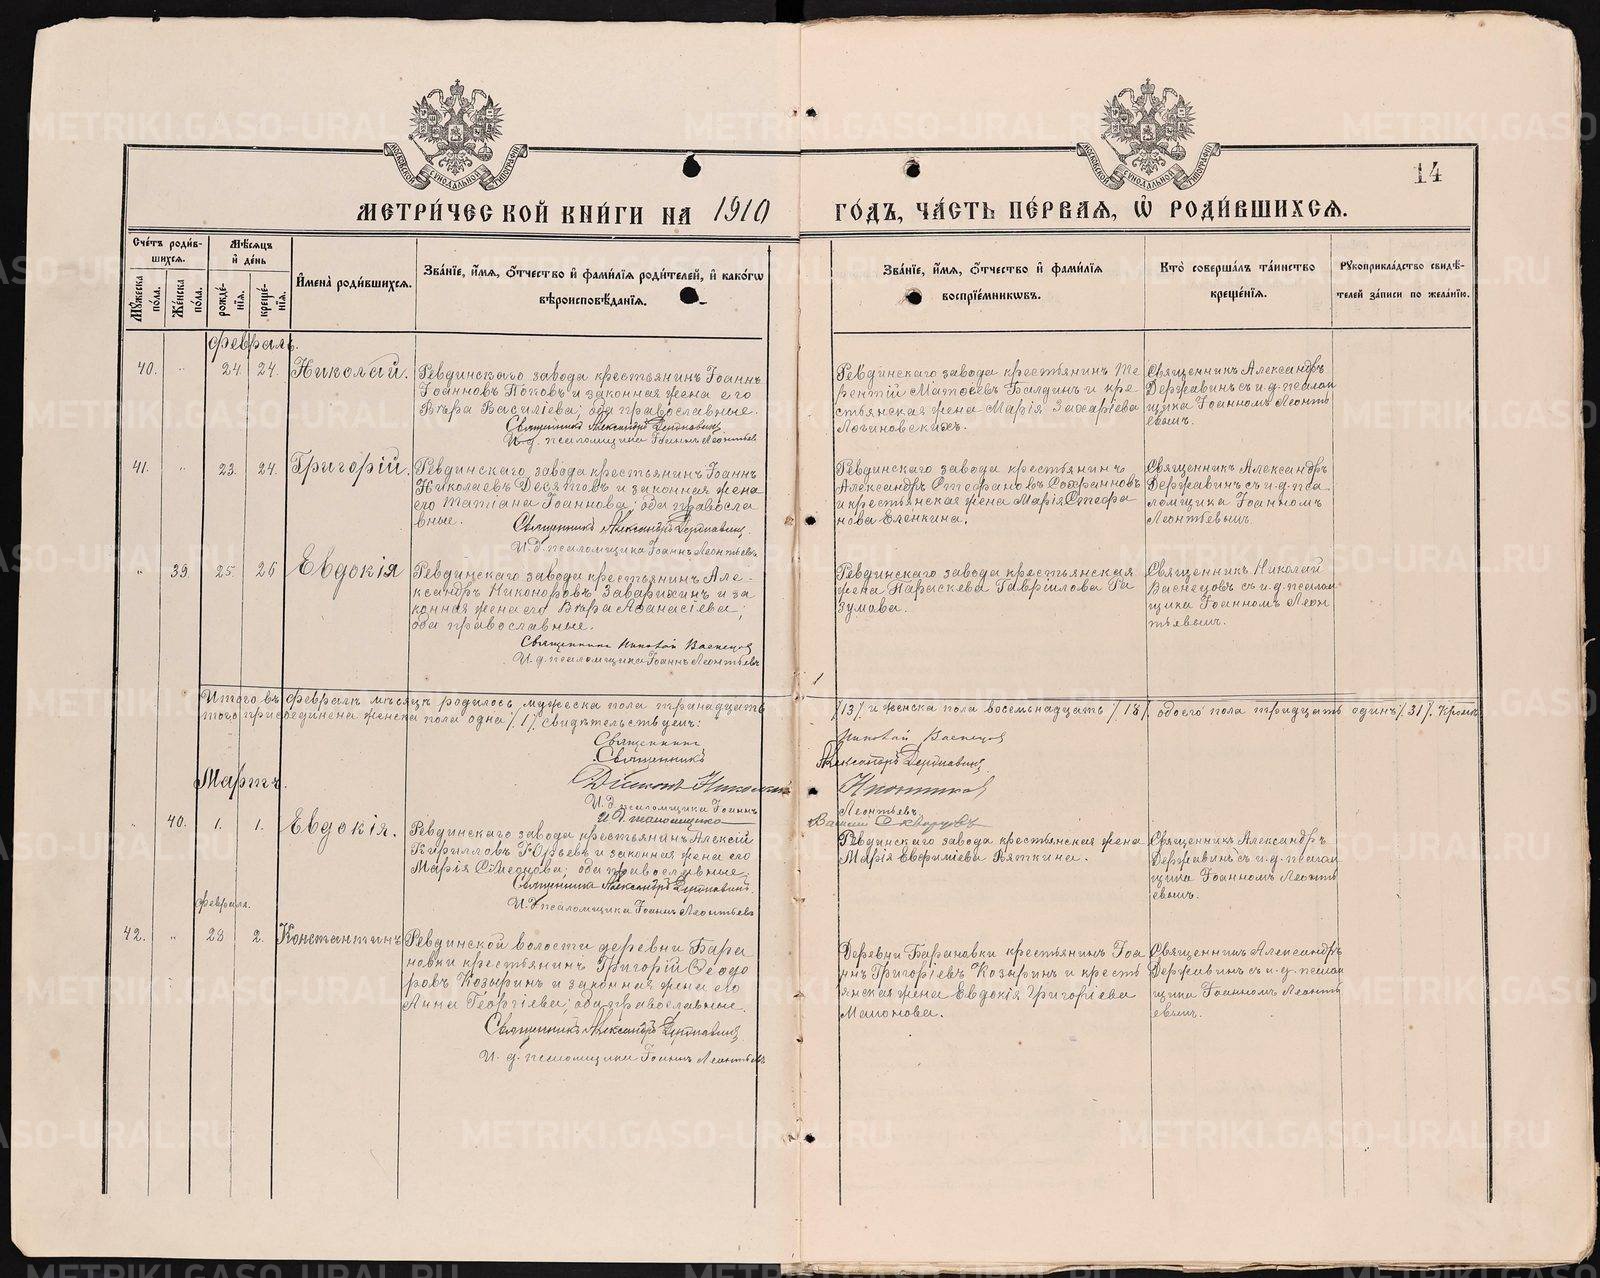 14
МЕТРИЧЕСКОЙ КНИГИ НА 1910 ГОДЪ, ЧАСТЬ ПЕРВАЯ, Ѡ РОДИВШИХСЯ.
Счетъ родив-
шихся.
Мужеска пола.
Женска пола.
Мѣсяцъ
и день
рожде-
нія.
креще-
нія.
Имена родившихся.
Званіе, имя, отчество и фамилія родителей, и какогѡ
вѣроисповѣданія.
Званіе, имя, отчество и фамилія
воспріемниковъ.
Кто совершалъ таинство
крещенія.
Рукоприкладство свидѣ-
телей записи по желанію.
Февраль.
40. " 24. 24. Николай.
Ревдинскаго завода крестьянинъ Іоаннъ
Іоанновъ Поповъ и законная жена его
Вѣра Василіева; оба православные.
Священникъ Александръ Державинъ
И. д. псаломщика Іоаннъ Леонтьевъ
Ревдинскаго завода крестьянинъ Те
рентій Матѳеевъ Балдинъ и кре-
стьянская жена Марія Захаріева
Логиновскихъ.
Священникъ Александръ
Державинъ съ и. д. псалом
щика Іоанномъ Леонть
евымъ.
41. " 23. 24. Григорій.
Ревдинскаго завода крестьянинъ Іоаннъ
Николаевъ Десятовъ и законная жена
его Татіана Іоаннова; оба правосла
вные.
Священникъ Александръ Державинъ
И. д. псаломщика Іоаннъ Леонтьевъ
Ревдинскаго завода крестьянинъ
Александръ Стефановъ Софроновъ
и крестьянская жена Марія Стефа
нова Еленкина.
Священникъ Александръ
Державинъ съ и. д. пса
ломщика Іоанномъ
Леонтьевымъ.
" 39. 25. 26 Евдокія
Ревдинскаго завода крестьянинъ Але-
ксандръ Никоноровъ Заварихинъ и за
конная жена его Вѣра Аѳанасіева;
оба православные.
Священникъ Николай Васнецовъ
И. д. псаломщика Іоаннъ Леонтьевъ
Ревдинскаго завода крестьянская
жена Параскева Гавріилова Ра
зумова.
Священникъ Николай
Васнецовъ съ и. д. псалом
щика Іоанномъ Леон
тьевымъ.
Итого въ февралѣ мѣсяцѣ родилось мужеска пола тринадцать /13/ и женска пола восемьнадцать /18/, обоего пола тридцать одинъ /31/. Кромѣ
того присоединена женска пола одна /1/. Свидѣтельствуемъ:
Священникъ Николай Васнецовъ
Священникъ Александръ Державинъ
Діаконъ Николай
И. д. псаломщика Іоаннъ Леонтьевъ
И. д. псаломщика
Мартъ.
" 40. 1. 1. Евдокія.
Ревдинскаго завода крестьянинъ Алексій
Кирилловъ Юрьевъ и законная жена его
Марія Симеонова; оба православные.
Священникъ Александръ Державинъ
И. д. псаломщика Іоаннъ Леонтьевъ
Ревдинскаго завода крестьянская жена
Марія Евфиміева Вяткина.
Священникъ Александръ
Державинъ съ и. д. псалом
щика Іоанномъ Леонть
евымъ.
Февраля.
42. " 28 2. Константинъ
Ревдинской волости деревни Бара
новки крестьянинъ Григорій Ѳеодо
ровъ Козыринъ и законная жена его
Анна Георгіева; оба православные.
Священникъ Александръ Державинъ
И. д. псаломщика Іоаннъ Леонтьевъ
Деревни Барановки крестьянинъ Іоа
ннъ Григоріевъ Козыринъ и кресть
янская жена Евдокія Григоріева
Мамонова.
Священникъ Александръ
Державинъ съ и. д. псалом
щика Іоанномъ Леонть
евымъ.
METRIKI.GASO-URAL.RU